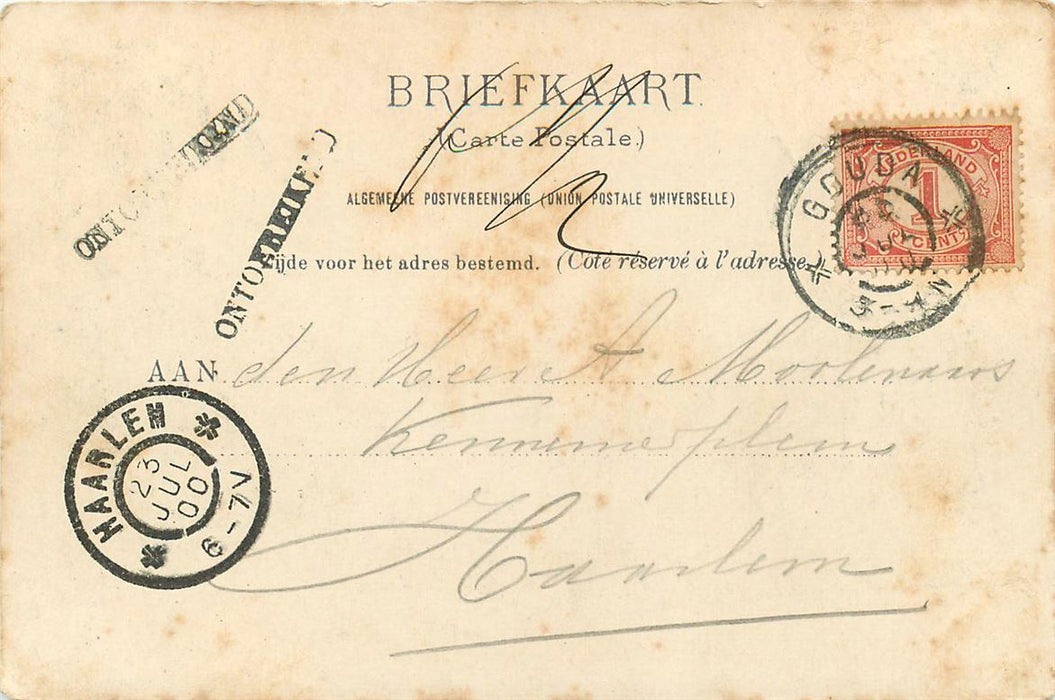 BRIEFKAART
(Carte Postale.)
ALGEMEENE POSTVEREENIGING (UNION POSTALE UNIVERSELLE)
Zijde voor het adres bestemd. (Côté réservé à l'adresse.
ONTOEREIKEND
ONTOEREIKEND
NEDERLAND
1
CENT
GOUDA
AAN den Heer A Moolenaars
Kennemerplein
Haarlem
HAARLEM
23
JUL
00
6-7V